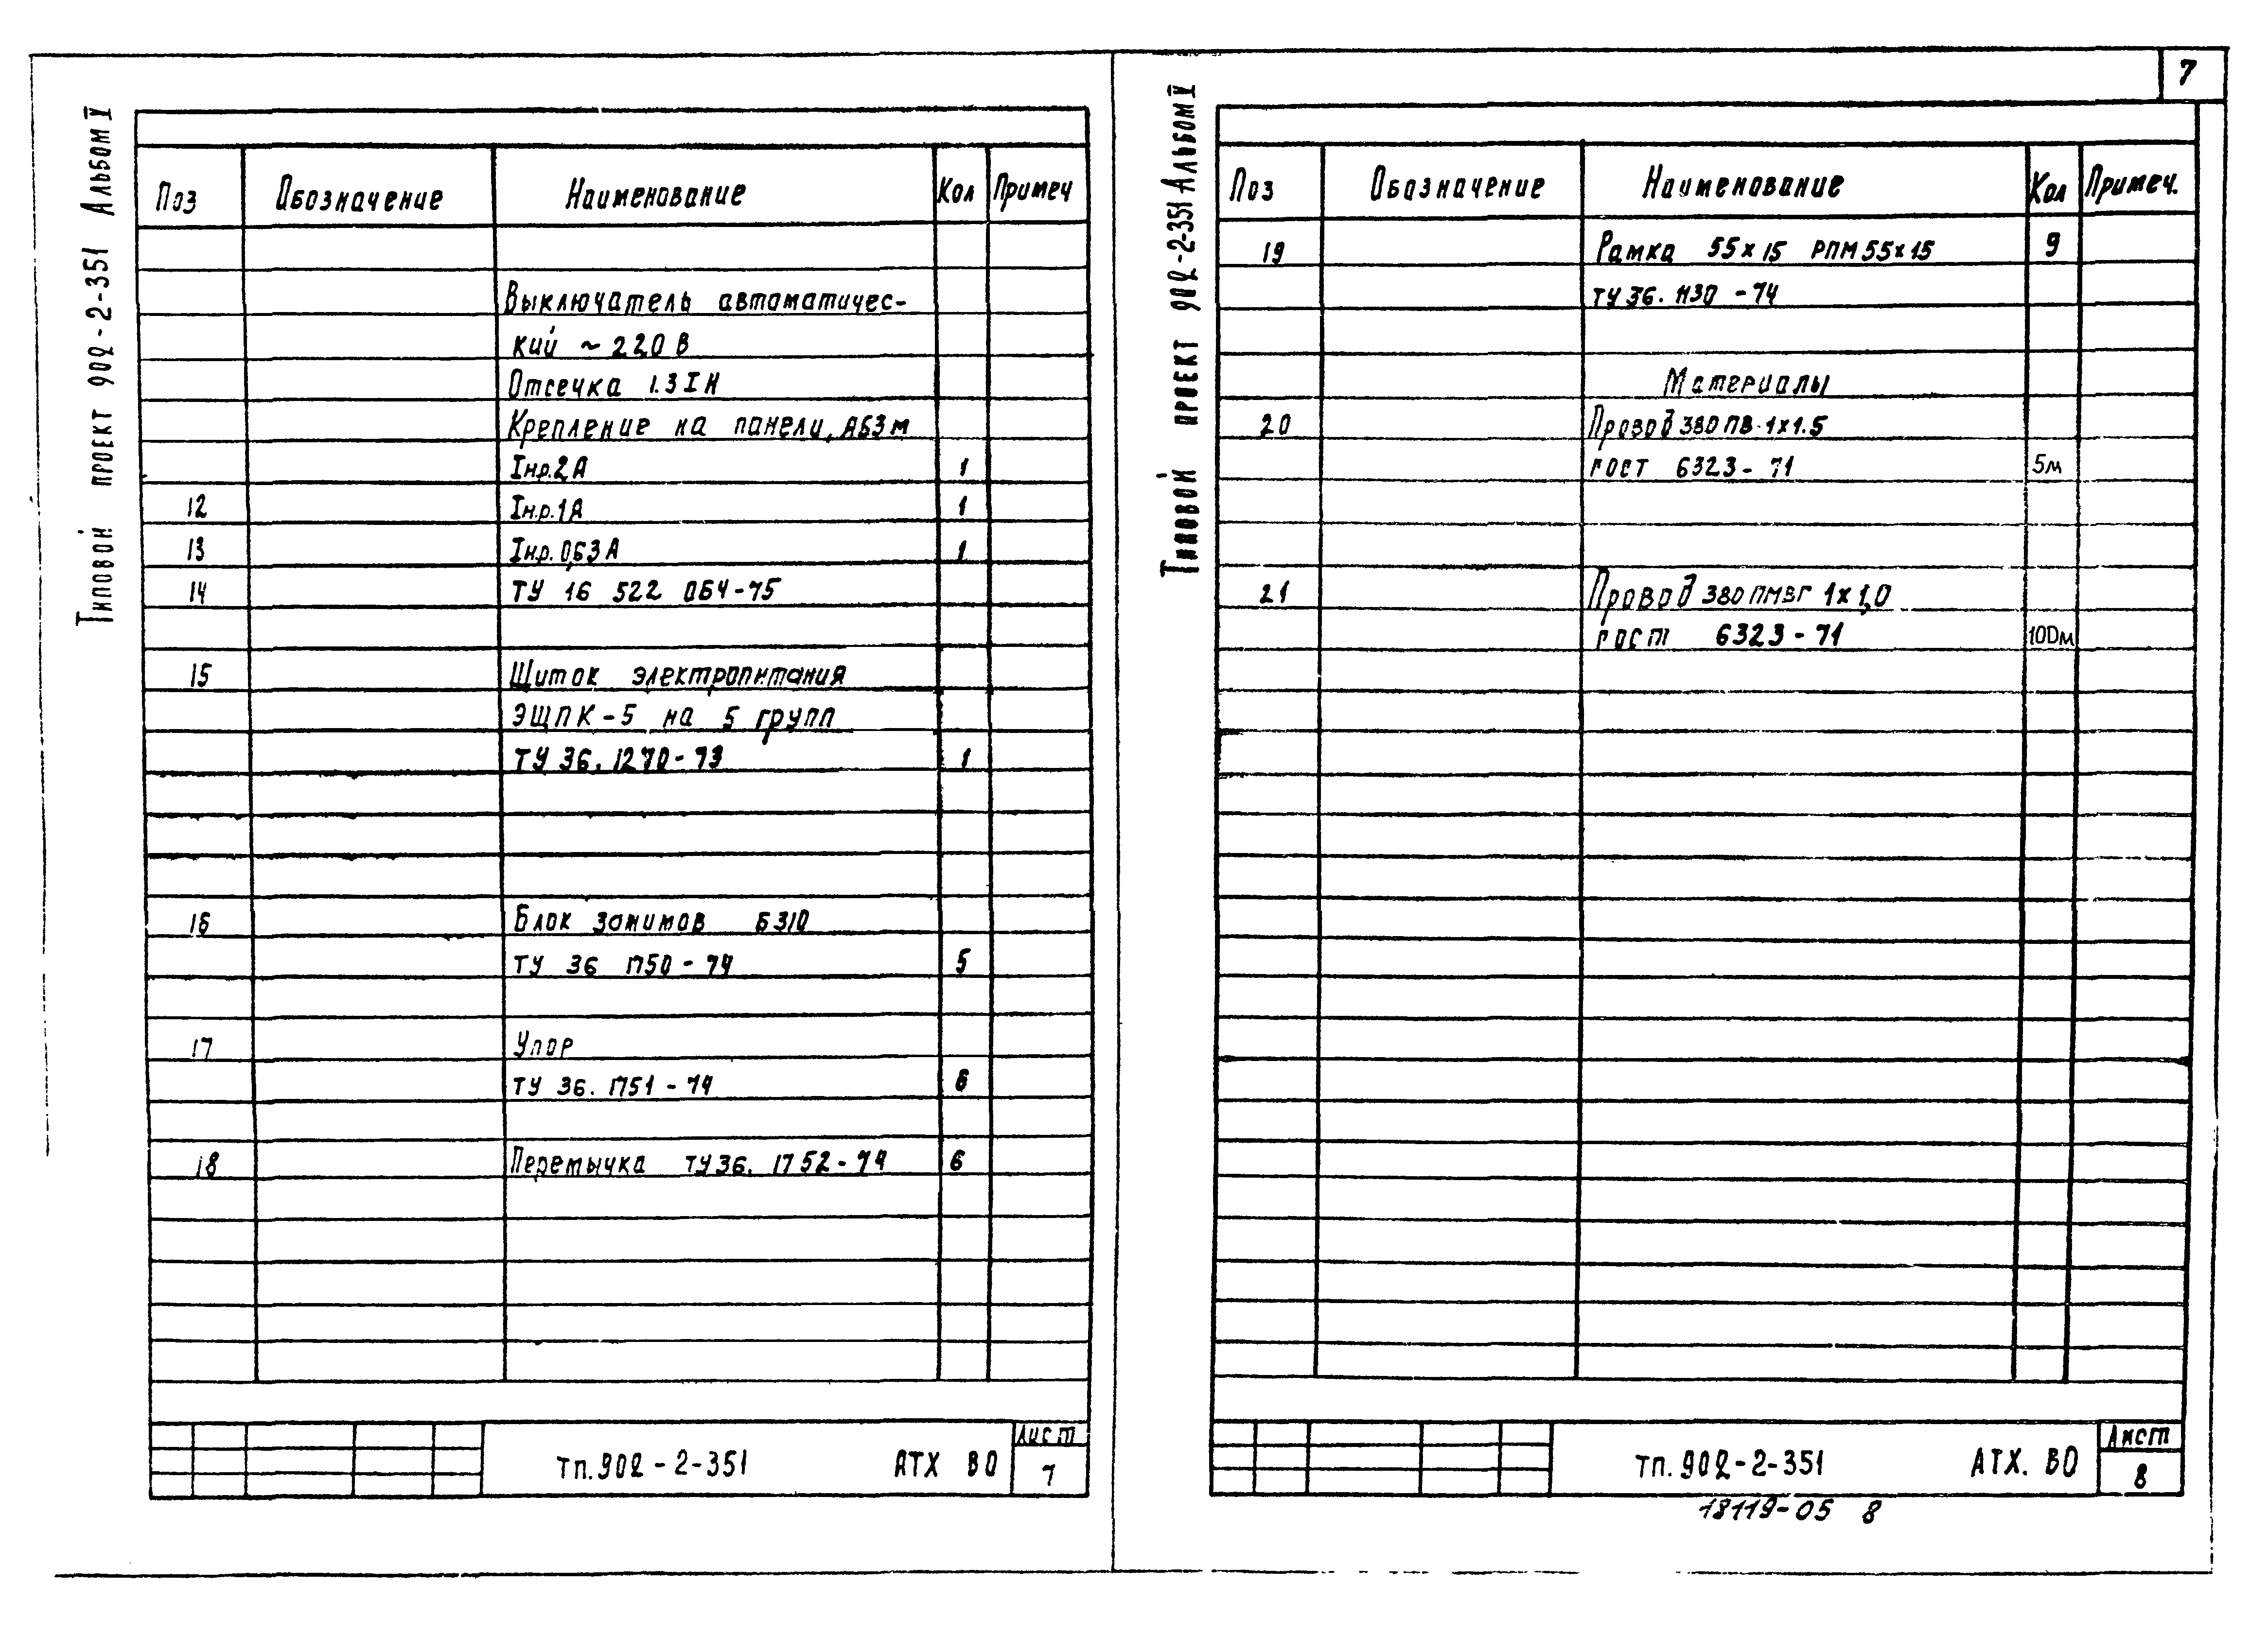 7
Типовой проект 902-2-351 Альбом V
Поз Обозначение Наименование Кол Примеч
Выключатель автоматичес-
кий ~ 220 В
Отсечка 1.3 Iн
Крепление на панели, А63м
Iн.р.2А 1
12 Iн.р.1А 1
13 Iн.р.0,63А 1
14 ТУ 16 522 064-75
15 Щиток электропитания
ЭЩПК-5 на 5 групп
ТУ 36. 1270-73 1
16 Блок зажимов БЗ10
ТУ 36 1750-74 5
17 Упор
ТУ 36. 1751-74 6
18 Перемычка ТУ36. 1752-74 6
ТП.902-2-351 АТХ ВО
Лист
7
Типовой проект 902-2-351 Альбом V
Поз Обозначение Наименование Кол Примеч.
19 Рамка 55х15 РПМ55х15 9
ТУ36. 1130-74
Материалы
20 Провод 380 ПВ-1х1.5
ГОСТ 6323-71 5м
21 Провод 380 ПМВГ 1х1,0
ГОСТ 6323-71 100м
ТП.902-2-351 АТХ. ВО
Лист
8
18119-05 8